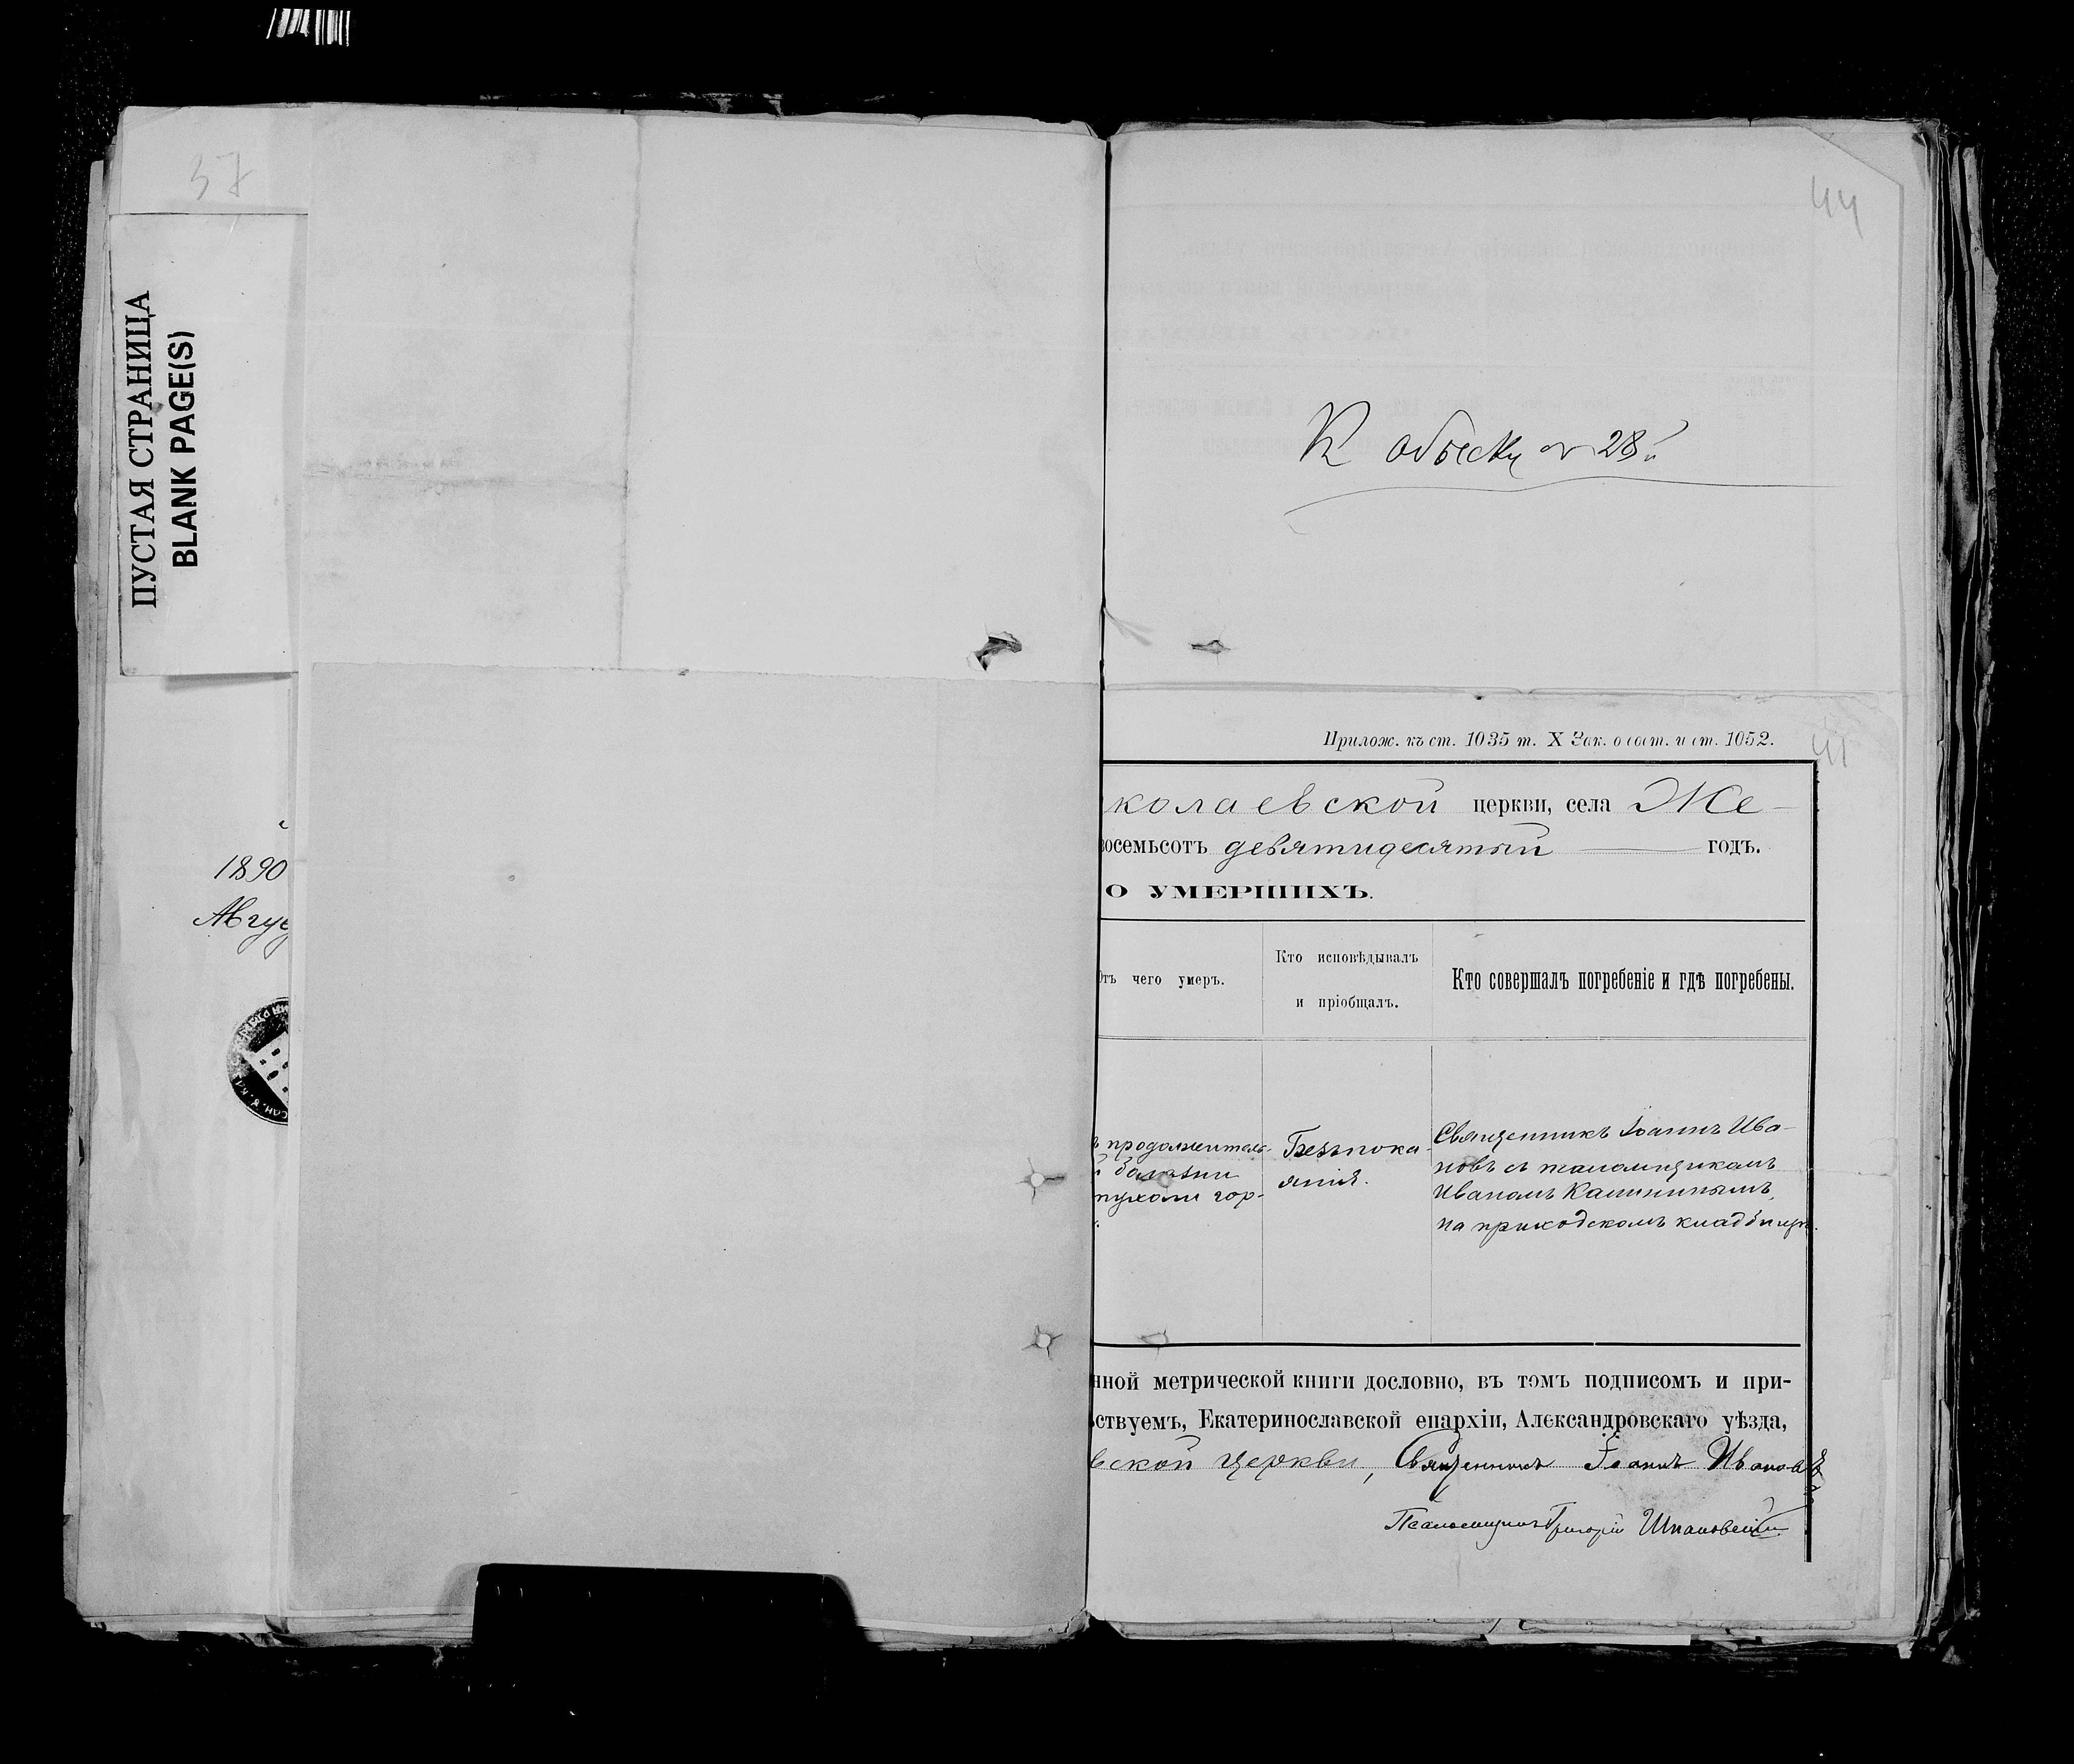 37
ПУСТАЯ СТРАНИЦА
BLANK PAGE(S)
1890
Авгус
44
К обыску № 28й
Прилож. къ ст. 1035 т. X Зак. о сост. и ст. 1052.
41
колаевской церкви, села Же-
восемьсотъ девятидесятый годъ.
О УМЕРШИХЪ.
Отъ чего умеръ.
Кто исповѣдывалъ
и пріобщалъ.
Кто совершалъ погребеніе и гдѣ погребены.
ъ продолжитель-
й болѣзни
пухоли гор-
Безъ пока-
янія.
Священникъ Іоаннъ Ива-
новъ съ псаломщикомъ
Иваномъ Калининымъ,
на приходскомъ кладбищѣ.
нной метрической книги дословно, въ томъ подписомъ и при-
ьствуемъ, Екатеринославской епархіи, Александровскаго уѣзда,
вской церкви, Священникъ Іоаннъ Ивановъ
Псаломщикъ Григорій